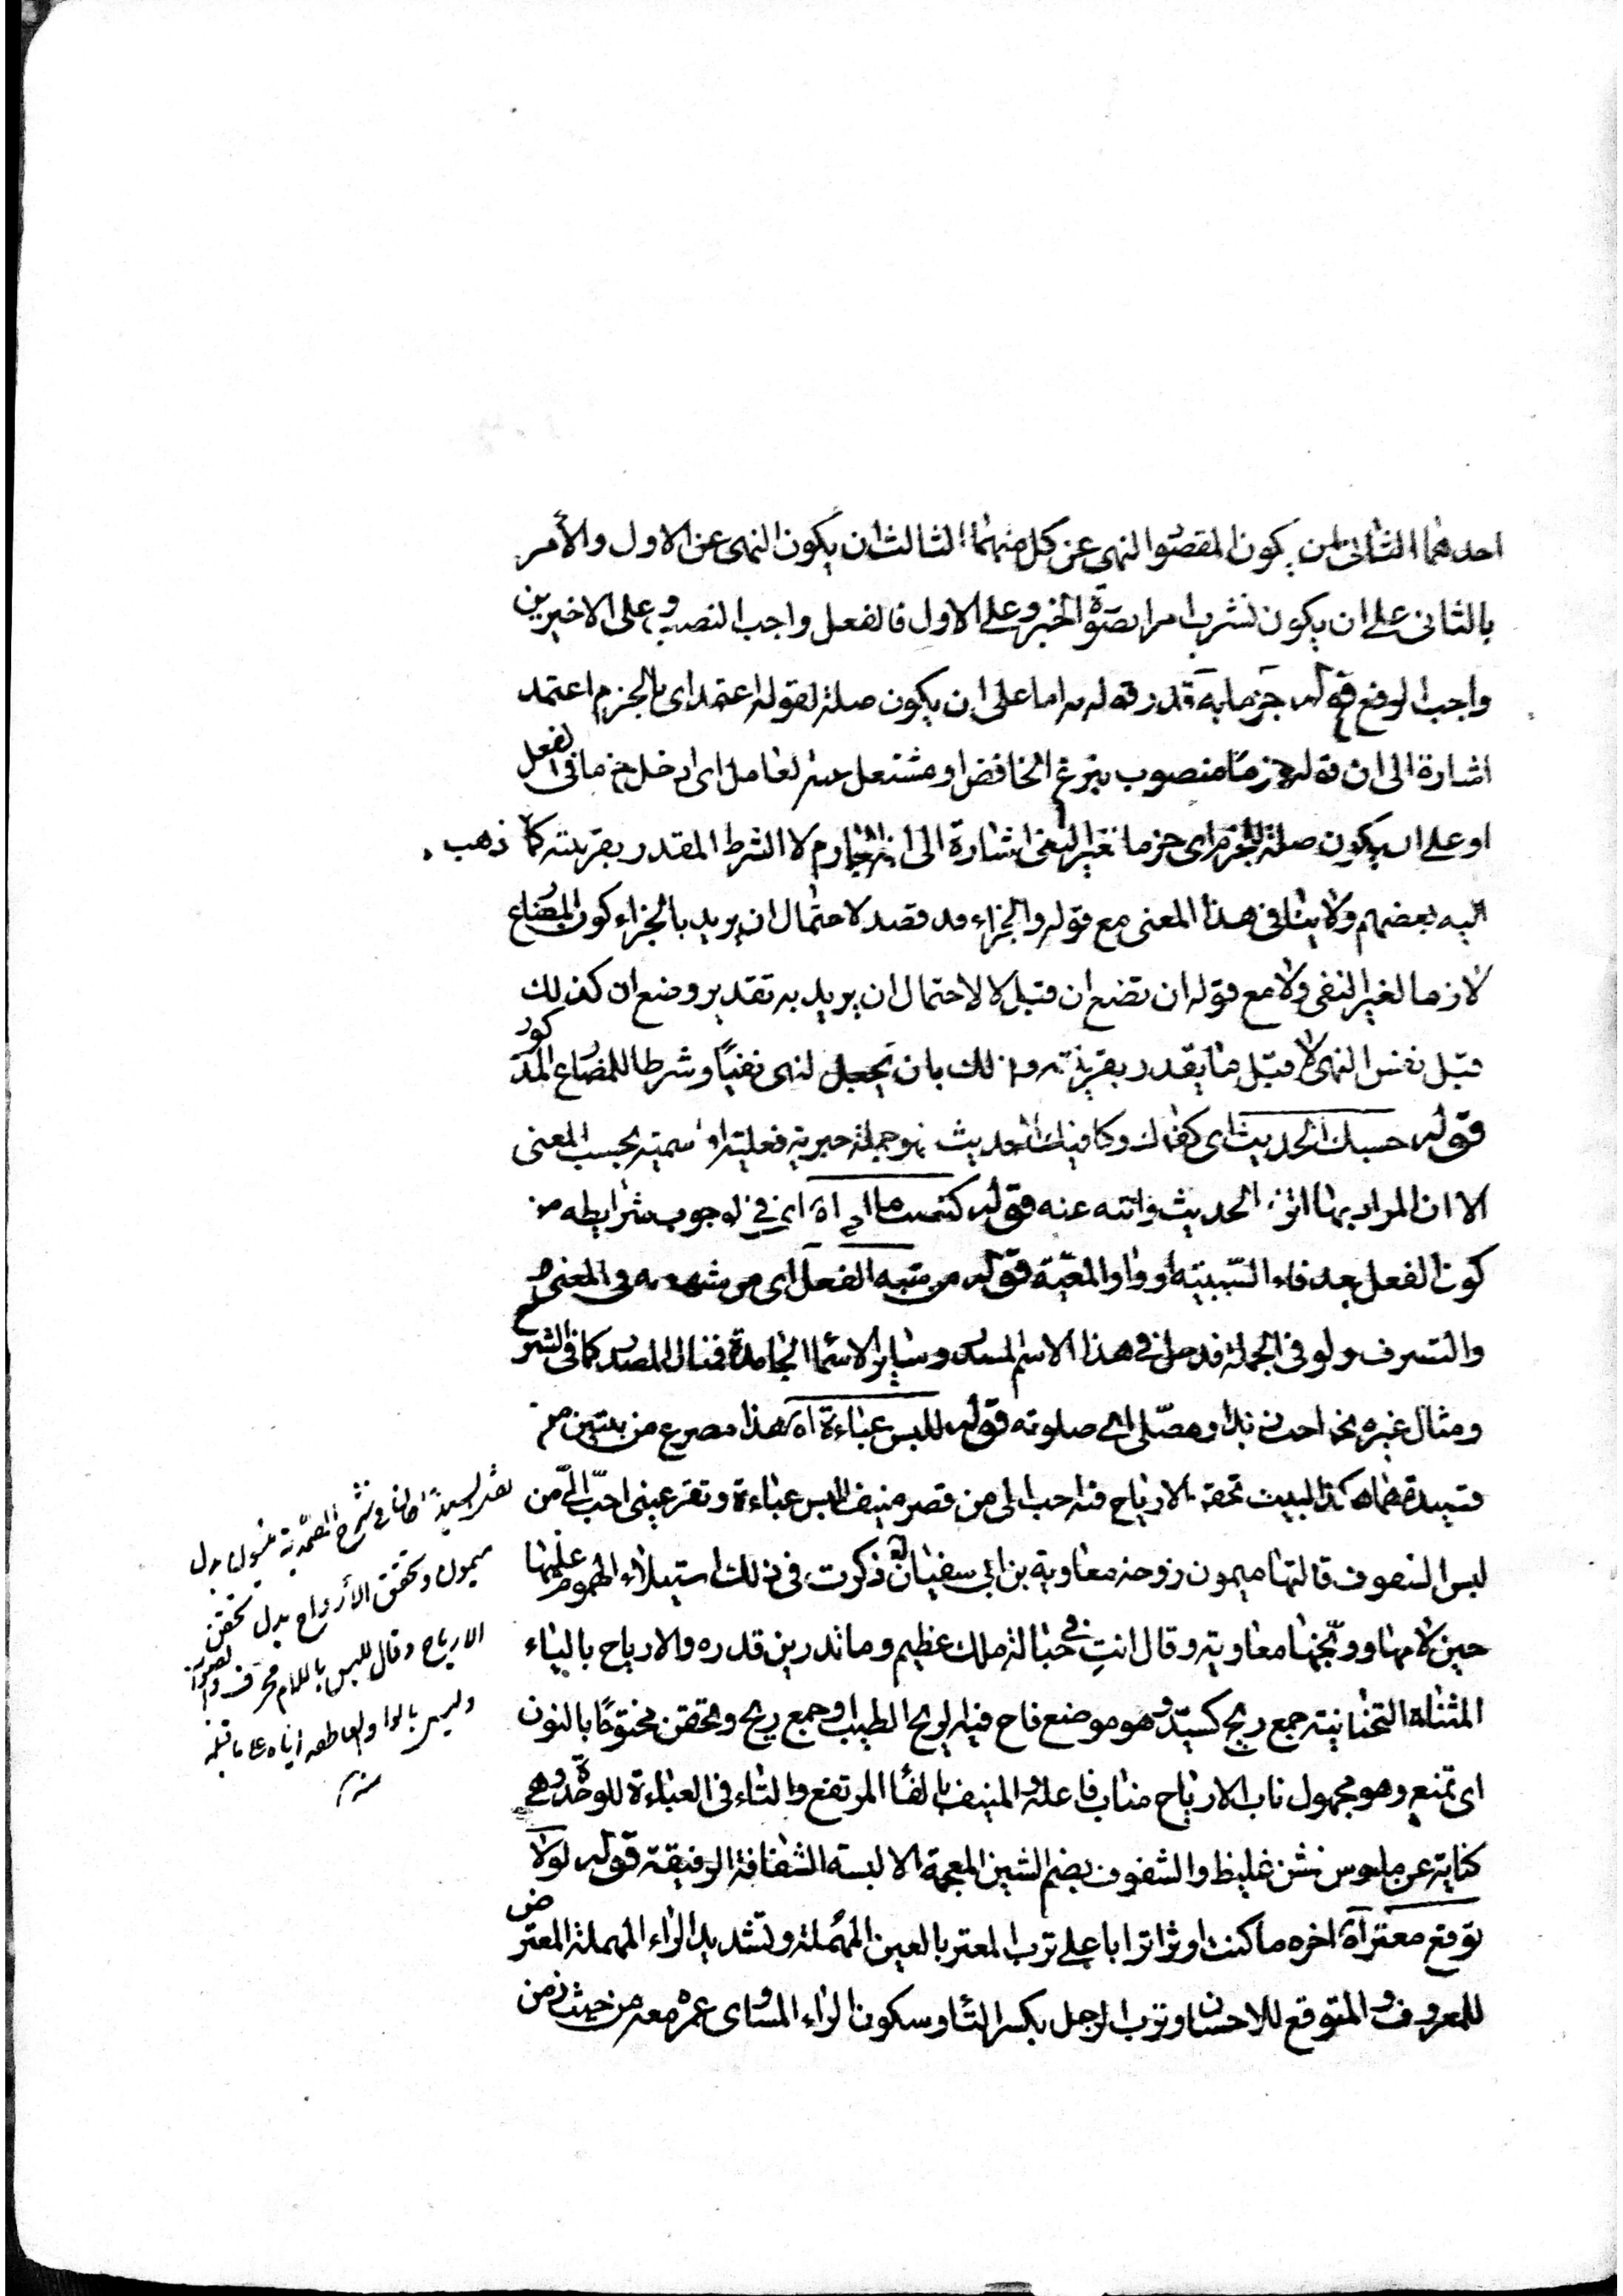 احدهما الثانى ان يكون المقصود النهى عن كل منهما الثالث ان يكون النهى عن الاول والأمر
بالثانى على ان يكون تشرب امرا بصورة الخبر وعلى الاول فالفعل واجب النصب وعلى الاخيرين
واجب الرفع قوله جزما به قدر قوله به اما على ان يكون صلة لقوله اعتمد اى بالجزم اعتمد
اشارة الى ان قوله جزما منصوب بنزع الخافض او مشتغل عنه لعامل اى ادخل جزما فى الفعل
او على ان يكون صلة للجزم اى جزما بغير النفى اشارة الى انه الجازم لا الشرط المقدر بقرينته كما ذهب
اليه بعضهم ولا ينافى هذا المعنى مع قوله والجزاء قد قصد لاحتمال ان يريد بالجزاء كون المضارع
لازما لغير النفى ولا مع قوله ان تضع ان قبل لا لاحتمال ان يريد به تقدير وضع ان كذلك
قبل نفس النهى لا قبل ما يقدر بقرينته وذلك بان تجعل لنهى نفيًا وشرطا للمضارع المذكور
قوله حسبك الحديث اى كفاك وكافيك الحديث فهو جملة خبرية فعلية او اسمية بحسب المعنى
الا ان المراد بها اترك الحديث وانته عنه قوله اه اى فى لوجوب شرايطه من
كون الفعل بعد فاء السببية او واو المعية قوله من شبه الفعل اى من شبهه به فى المعنى
والتصرف ولو فى الجملة فدخل فى هذا الاسم المصدر وساير الاسماء الجامدة فمثال المصدر كما فى الشرح
ومثال غيره نحو صلوته قوله للبس عباءة اه هذا مصرع من بيتين من
قصيدة البيت تخفق الارياح فيه احب الى من قصر منيف للبس عباءة وتقر عينى احبّ الىّ من
لبس الشفوف قالتها ميمون زوجة معاوية بن ابى سفيان ذكرت فى ذلك استيلاء الهموم عليها
حين لامها ووبّخها معاوية وقال انتِ فى حبالة ملك عظيم وما تدرين قدره والارياح بالياء
المثناة التحتانية جمع ريح كسيّد وهو موضع فاح فيه لريح الطيب او جمع ريح وتخفق مختومًا بالنون
اى تمنع وهو مجهول ناب الارياح مناب فاعله والمنيف بالفاء المرتفع والتاء فى العباءة للوحدة وهى
كناية عن ملبوس خشن غليظ والشفوف بضم الشين المعجمة الالبسة الشفافة الرقيقة قوله لولا
توقع معتر اه اخره ما كنت اوثر اترابا على ترب المعتر بالعين المهملة وتشديد الراء المهملة المعترض
للمعروف والمتوقع للاحسان وترب الرجل بكسر التاء وسكون الراء المساوى عمره معه من حيث زمن
فى شرح الصمدية ميسون بدل
ميمون وتخفق الأرواح بدل تخفقن
الارياح وقال للبس باللام محرف والصواب
ولبس بالواو العاطفة اياه على ما قبله